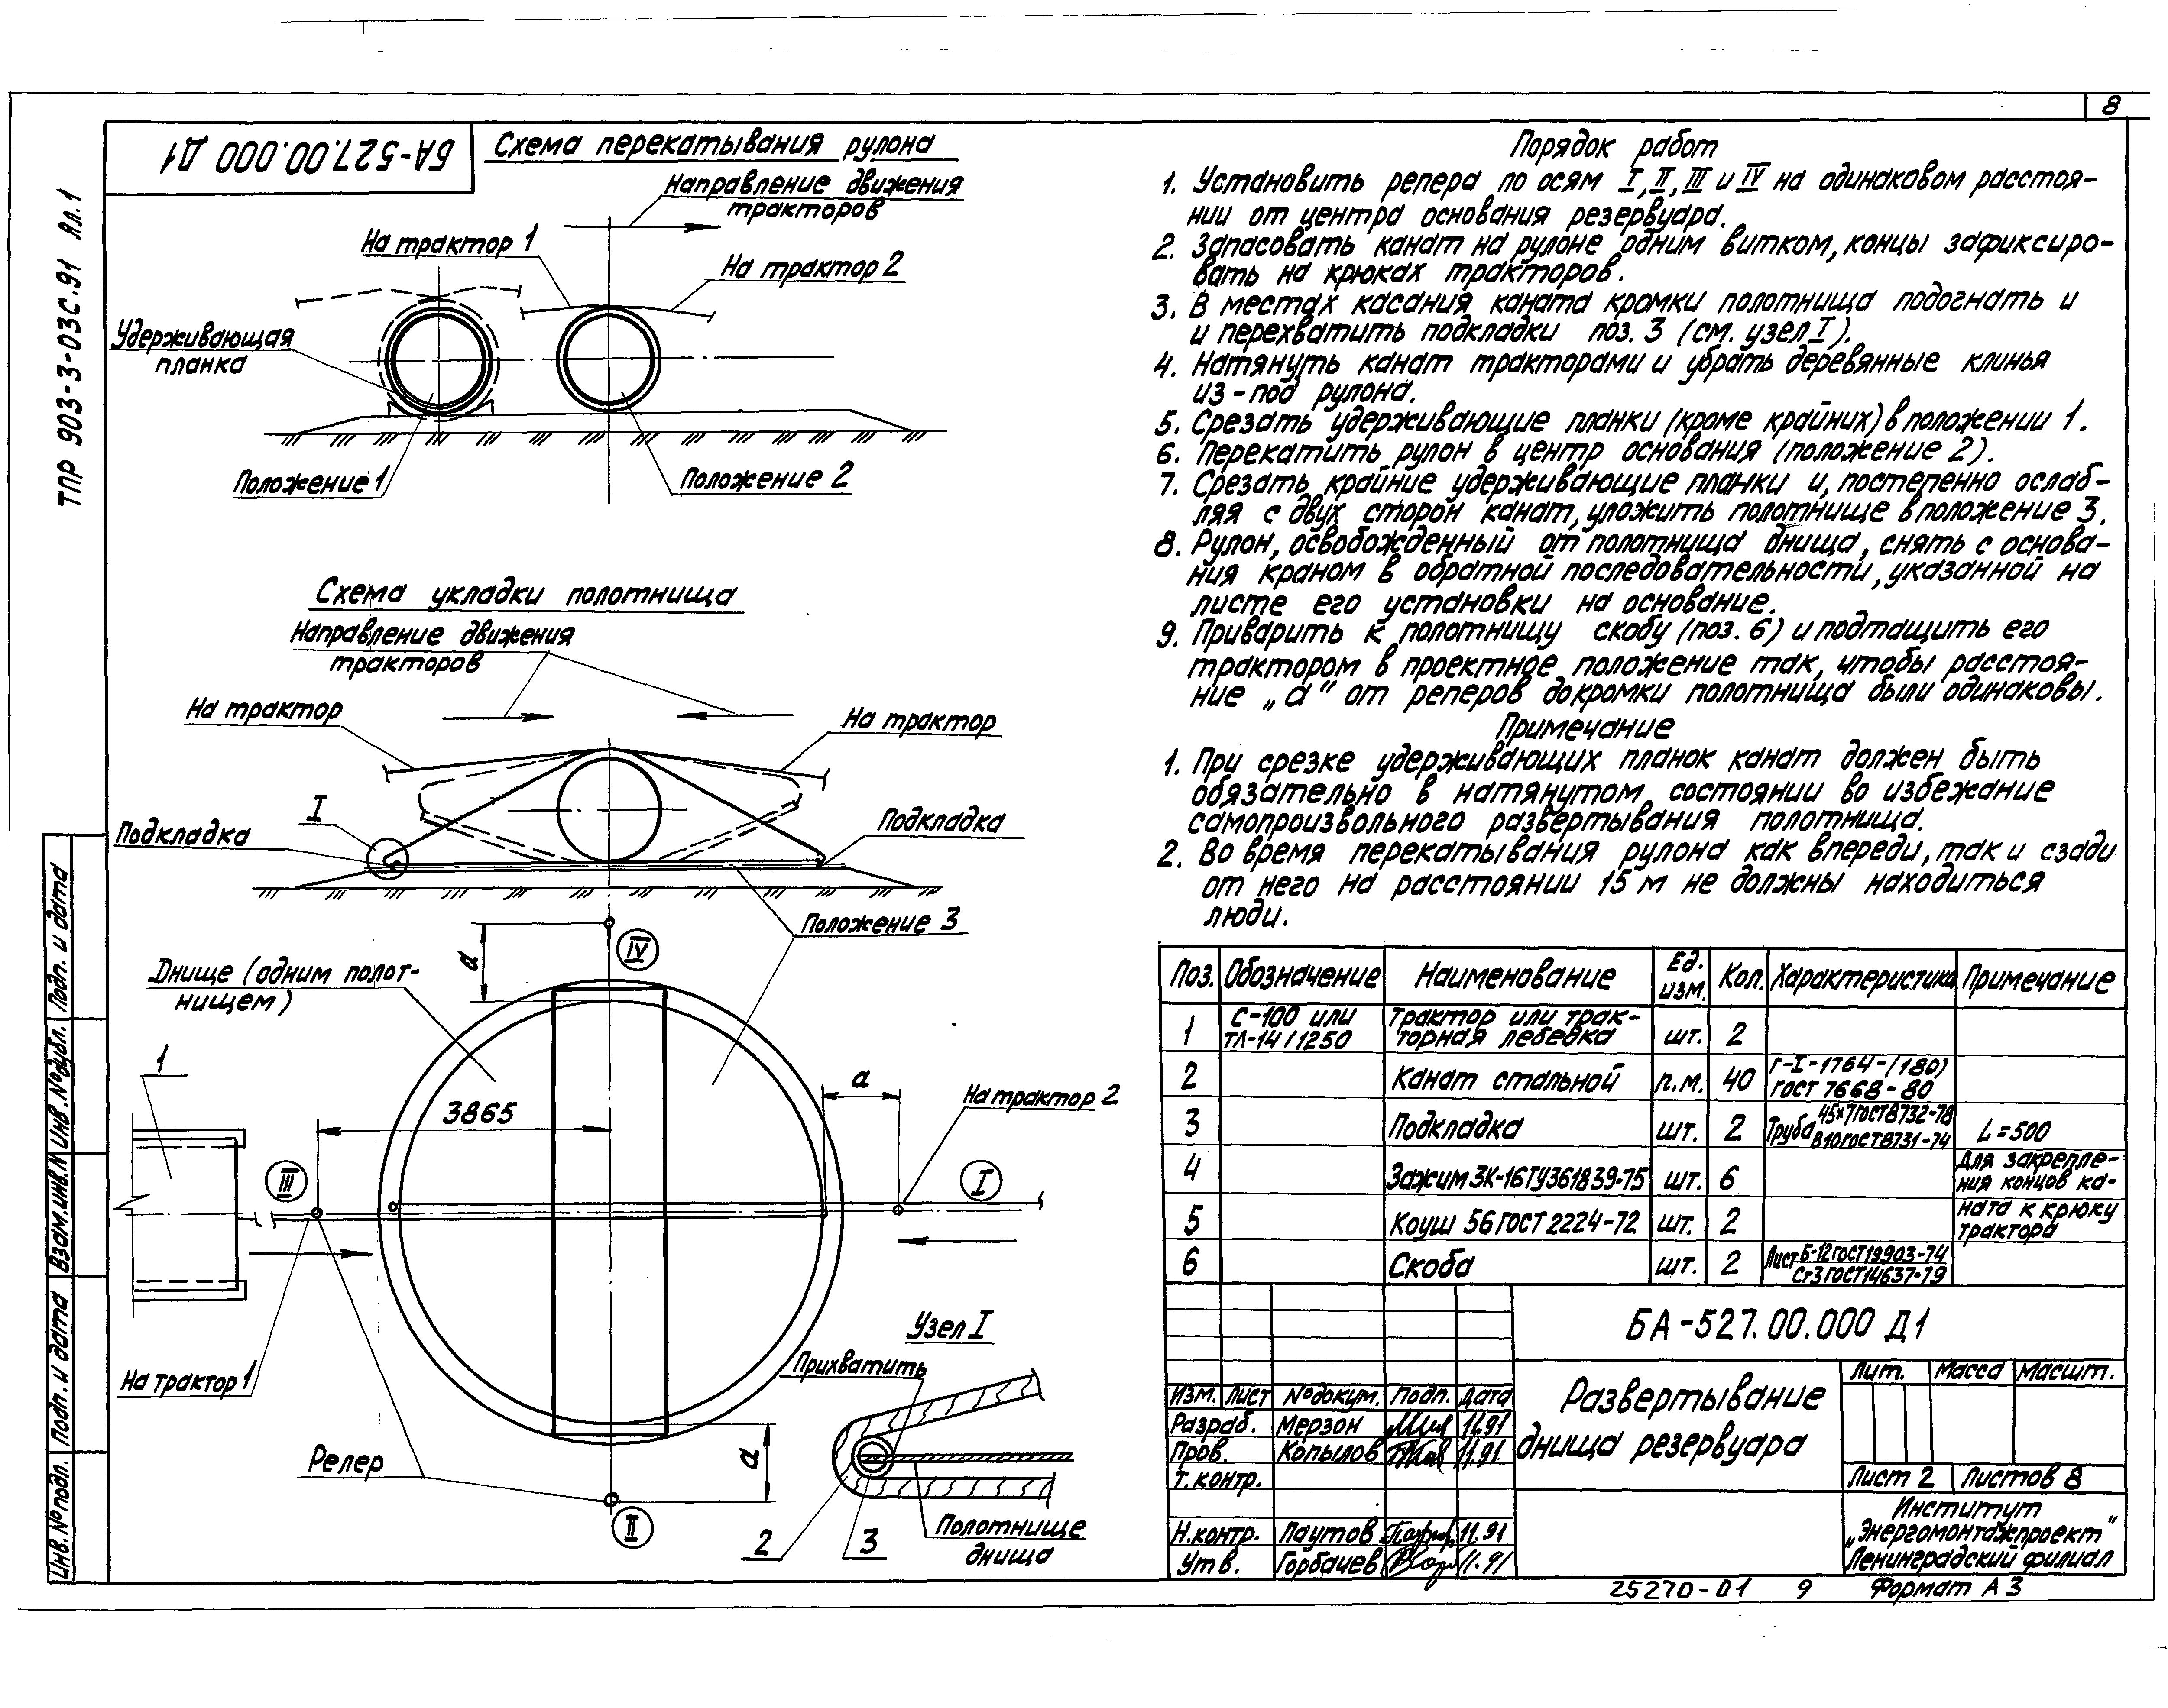 8
БА-527.00.000 Д1
ТПР 903-3-03С.91 Ал.1
Схема перекатывания рулона
Направление движения
тракторов
На трактор 1
На трактор 2
Удерживающая
планка
Положение 1
Положение 2
Схема укладки полотнища
Направление движения
тракторов
На трактор
На трактор
I
Подкладка
Подкладка
Положение 3
Днище (одним полот-
нищем)
а
IV
1
3865
а
На трактор 2
III
I
На трактор 1
Репер
а
II
Узел I
Прихватить
2
3
Полотнище
днища
Порядок работ
1. Установить репера по осям I, II, III и IV на одинаковом расстоя-
нии от центра основания резервуара.
2. Запасовать канат на рулоне одним витком, концы зафиксиро-
вать на крюках тракторов.
3. В местах касания каната кромки полотнища подогнать и
и перехватить подкладки поз. 3 (см. узел I).
4. Натянуть канат тракторами и убрать деревянные клинья
из-под рулона.
5. Срезать удерживающие планки (кроме крайних) в положении 1.
6. Перекатить рулон в центр основания (положение 2).
7. Срезать крайние удерживающие планки и, постепенно ослаб-
ляя с двух сторон канат, уложить полотнище в положение 3.
8. Рулон, освобожденный от полотнища днища, снять с основа-
ния краном в обратной последовательности, указанной на
листе его установки на основание.
9. Приварить к полотнищу скобу (поз. 6) и подтащить его
трактором в проектное положение так, чтобы расстоя-
ние „а" от реперов до кромки полотнища были одинаковы.
Примечание
1. При срезке удерживающих планок канат должен быть
обязательно в натянутом состоянии во избежание
самопроизвольного развертывания полотнища.
2. Во время перекатывания рулона как впереди, так и сзади
от него на расстоянии 15 м не должны находиться
люди.
Поз. Обозначение Наименование Ед. изм. Кол. Характеристика Примечание
1 С-100 или ТЛ-14/1250 Трактор или трак-торная лебедка шт. 2
2 Канат стальной п.м. 40 Г-I-1764-(180) ГОСТ 7668-80
3 Подкладка шт. 2 Труба 45×7 ГОСТ 8732-78 В10 ГОСТ 8731-74 L=500
4 Зажим ЗК-16 ТУ361839-75 шт. 6 Для закрепле-ния концов ка-
5 Коуш 56 ГОСТ 2224-72 шт. 2 ната к крюку трактора
6 Скоба шт. 2 Лист Б-12 ГОСТ 19903-74 Ст3 ГОСТ 14637-79
БА-527.00.000 Д1
Изм. Лист № докум. Подп. Дата
Разраб. Мерзон 11.91
Пров. Копылов 11.91
Т.контр.
Н.контр. Паутов 11.91
Утв. Горбачев 11.91
Развертывание
днища резервуара
Лит. Масса Масшт.
Лист 2 Листов 8
Институт
„Энергомонтажпроект"
Ленинградский филиал
25270-01 9 Формат А3
Инв.№ подл. Подп. и дата Взам.инв.№ Инв.№ дубл. Подп. и дата